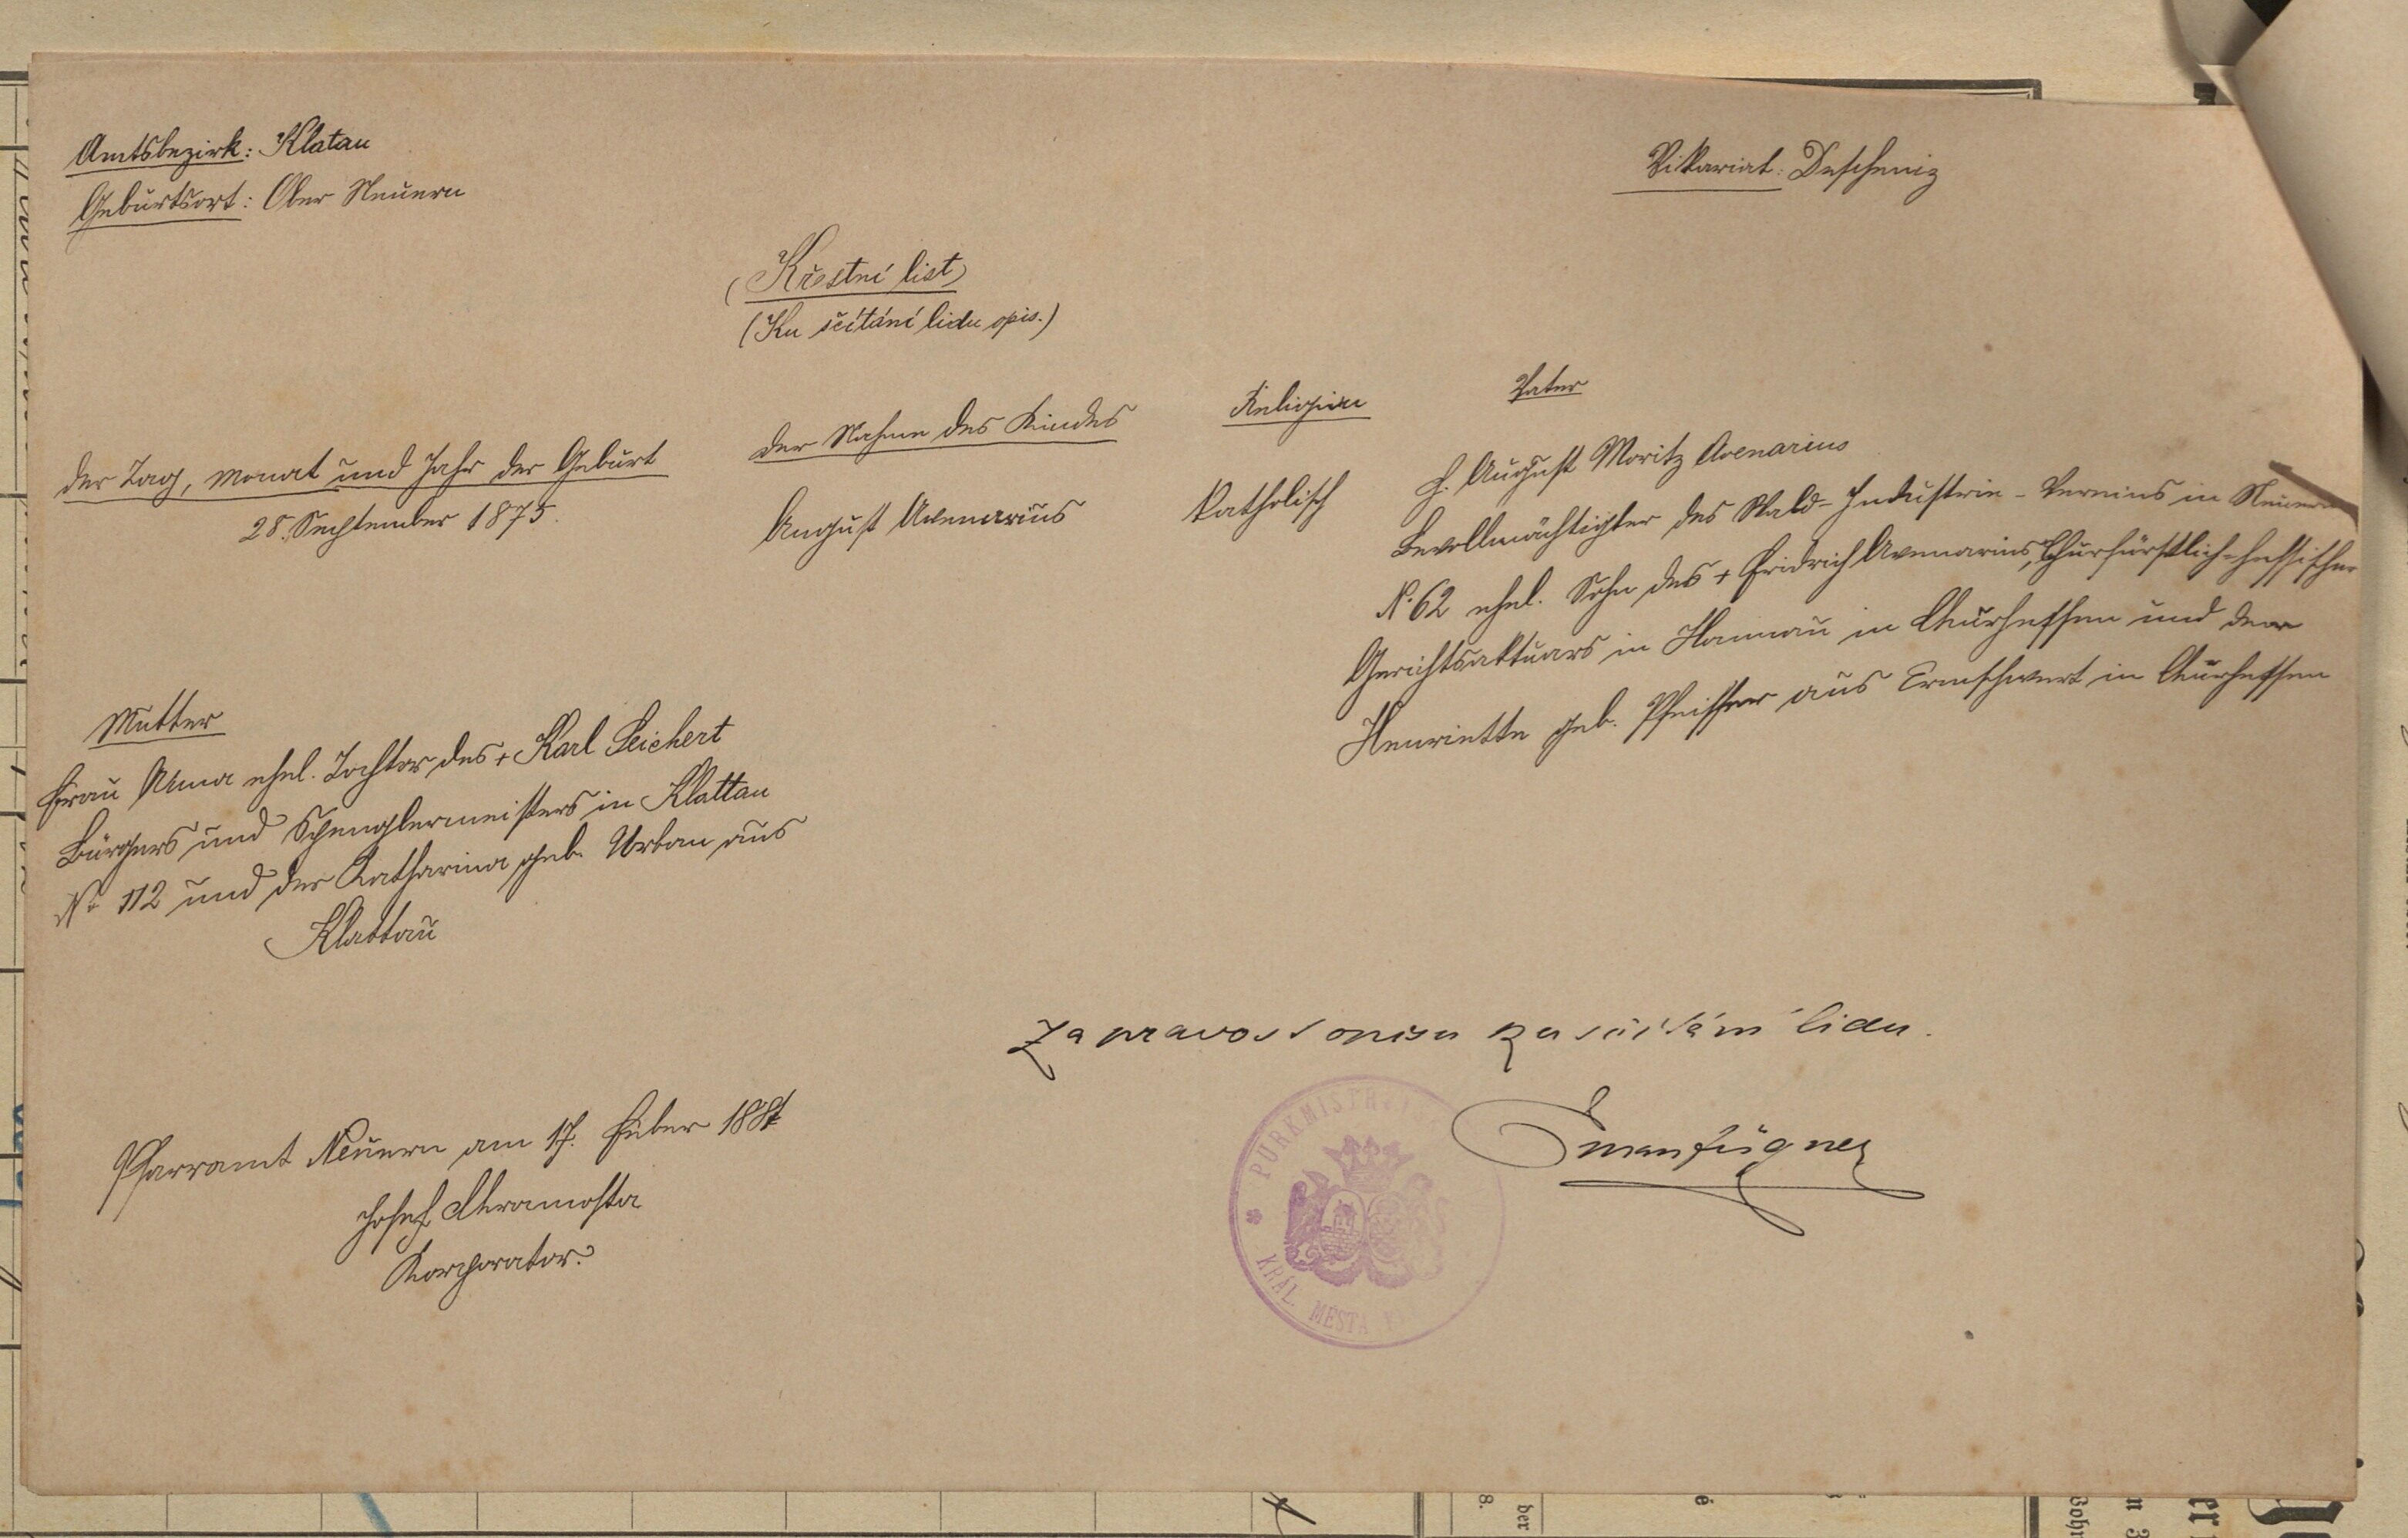 Amtsbezirk: Klatau
Geburtsort: Ober Neuern
Vikariat: Descheniz
(Křestní list)
(Ku sčítání lidu opis.)
der Tag, Monat und Jahr der Geburt
28. September 1875.
der Nahme des Kindes
August Avenarius
Religion
katholisch
Vater
H. August Moritz Avenarius
Bevollmächtigter des Wald-Industrie-Vereins in Neuern
No. 62 ehel. Sohn des + Fridrich Avenarius, Churfürstlich-hessischer
Gerichtsaktuars in Hannau in Churhessen und der
Henriette geb. Pfeiffer aus Ermschwert in Churhessen
Mutter
Frau Anna ehel. Tochter des + Karl Leichert
Bürgers und Spenglermeisters in Klattau
No 112 und der Katharina geb. Urban aus
Klattau
Za pravost opisu ku sčítání lidu.
Pfarramt Neuern am 17. Feber 188
Josef
Korporator.
PURKMISTR
KRÁL. MĚSTA